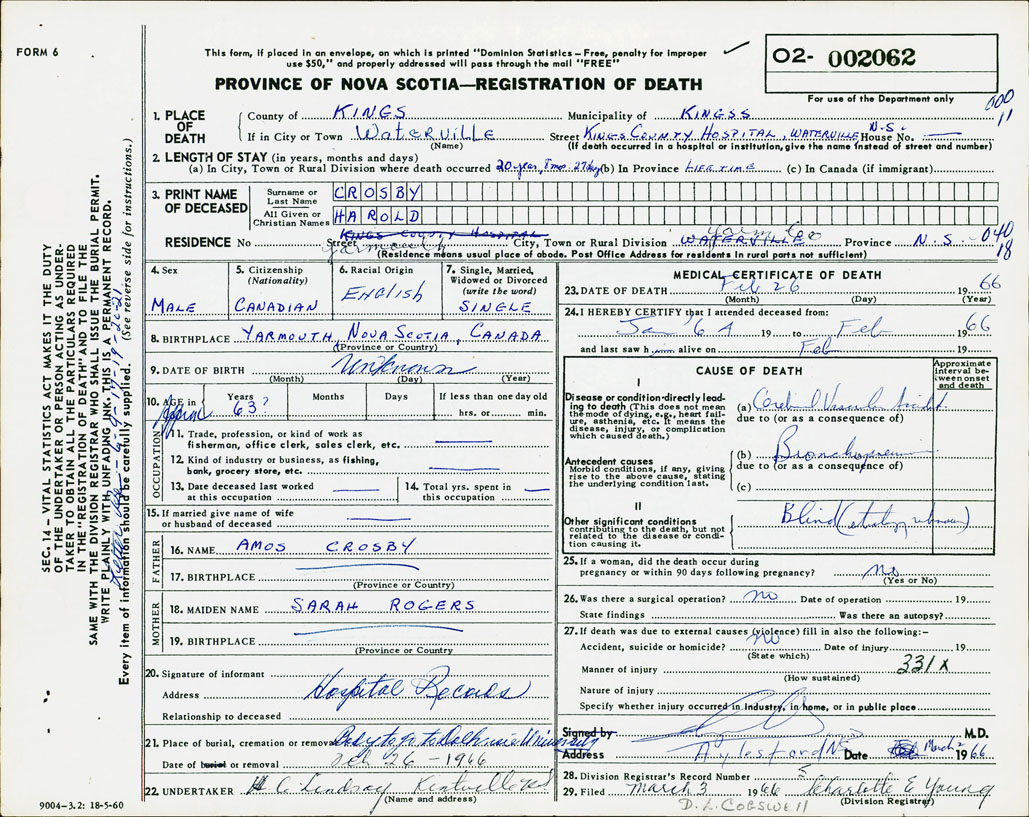 FORM 6
This form, if placed in an envelope, on which is printed "Dominion Statistics – Free, penalty for improper
use $50," and properly addressed will pass through the mail "FREE"
O2- 002062
PROVINCE OF NOVA SCOTIA—REGISTRATION OF DEATH
For use of the Department only
1. PLACE OF DEATH
County of KINGS Municipality of KINGSS
If in City or Town WATERVILLE Street KINGS COUNTY HOSPITAL, WATERVILLE N.S. House No.
(Name) (If death occurred in a hospital or institution, give the name instead of street and number)
2. LENGTH OF STAY (in years, months and days)
(a) In City, Town or Rural Division where death occurred 20 year, 8 mo. 27 day (b) In Province LIFE TIME (c) In Canada (if immigrant)
3. PRINT NAME OF DECEASED
Surname or Last Name CROSBY
All Given or Christian Names HAROLD
RESIDENCE No Street KINGS COUNTY HOSPITAL Yarmouth City, Town or Rural Division WATERVILLE Yarm Co Province N.S. 040
18
(Residence means usual place of abode. Post Office Address for residents in rural parts not sufficient)
4. Sex
MALE
5. Citizenship
(Nationality)
CANADIAN
6. Racial Origin
ENGLISH
7. Single, Married,
Widowed or Divorced
(write the word)
SINGLE
8. BIRTHPLACE YARMOUTH, NOVA SCOTIA, CANADA
(Province or Country)
9. DATE OF BIRTH Unknown
(Month) (Day) (Year)
10. AGE in Years Months Days If less than one day old
63? hrs. or min.
OCCUPATION
11. Trade, profession, or kind of work as
fisherman, office clerk, sales clerk, etc.
12. Kind of industry or business, as fishing,
bank, grocery store, etc.
13. Date deceased last worked
at this occupation
14. Total yrs. spent in
this occupation
15. If married give name of wife
or husband of deceased
FATHER
16. NAME AMOS CROSBY
17. BIRTHPLACE
(Province or Country)
MOTHER
18. MAIDEN NAME SARAH ROGERS
19. BIRTHPLACE
(Province or Country
20. Signature of informant
Address Hospital Records
Relationship to deceased
21. Place of burial, cremation or removal Body to go to Dalhousie University
Date of burial or removal Feb 26 - 1966
22. UNDERTAKER H C Lindsay Kentville NS
(Name and address)
9004–3.2: 18-5-60
MEDICAL CERTIFICATE OF DEATH
23. DATE OF DEATH Feb 26 19 66
(Month) (Day) (Year)
24. I HEREBY CERTIFY that I attended deceased from:
Jan '64 19 to Feb 19 66
and last saw him alive on Feb 19
CAUSE OF DEATH
Approximate
interval between onset
and death
I
Disease or condition directly leading to death (This does not mean
the mode of dying, e.g., heart failure, asthenia, etc. It means the
disease, injury, or complication
which caused death.)
(a) Cerebral Vascular Accident
due to (or as a consequence of)
Antecedent causes
Morbid conditions, if any, giving
rise to the above cause, stating
the underlying condition last.
(b) Bronchopneum
due to (or as a consequence of)
(c)
II
Other significant conditions
contributing to the death, but not
related to the disease or condition causing it.
Blind (etiology unknown)
25. If a woman, did the death occur during
pregnancy or within 90 days following pregnancy? No
(Yes or No)
26. Was there a surgical operation? no Date of operation 19
State findings Was there an autopsy?
27. If death was due to external causes (violence) fill in also the following:–
Accident, suicide or homicide? no Date of injury 19
(State which)
Manner of injury 331X
(How sustained)
Nature of injury
Specify whether injury occurred in industry, in home, or in public place
Signed by M.D.
Address Aylesford NS Date March 2 1966
28. Division Registrar's Record Number 5
29. Filed March 3 1966 Charlotte E Young
(Division Registrar)
D. L. COGSWELL
SEC. 14 – VITAL STATISTICS ACT MAKES IT THE DUTY
OF THE UNDERTAKER OR PERSON ACTING AS UNDER-
TAKER TO OBTAIN ALL THE PARTICULARS REQUIRED
IN THE "REGISTRATION OF DEATH" AND TO FILE THE
SAME WITH THE DIVISION REGISTRAR WHO SHALL ISSUE THE BURIAL PERMIT.
WRITE PLAINLY WITH UNFADING INK. THIS IS A PERMANENT RECORD.
Every item of information should be carefully supplied. (See reverse side for instructions.)